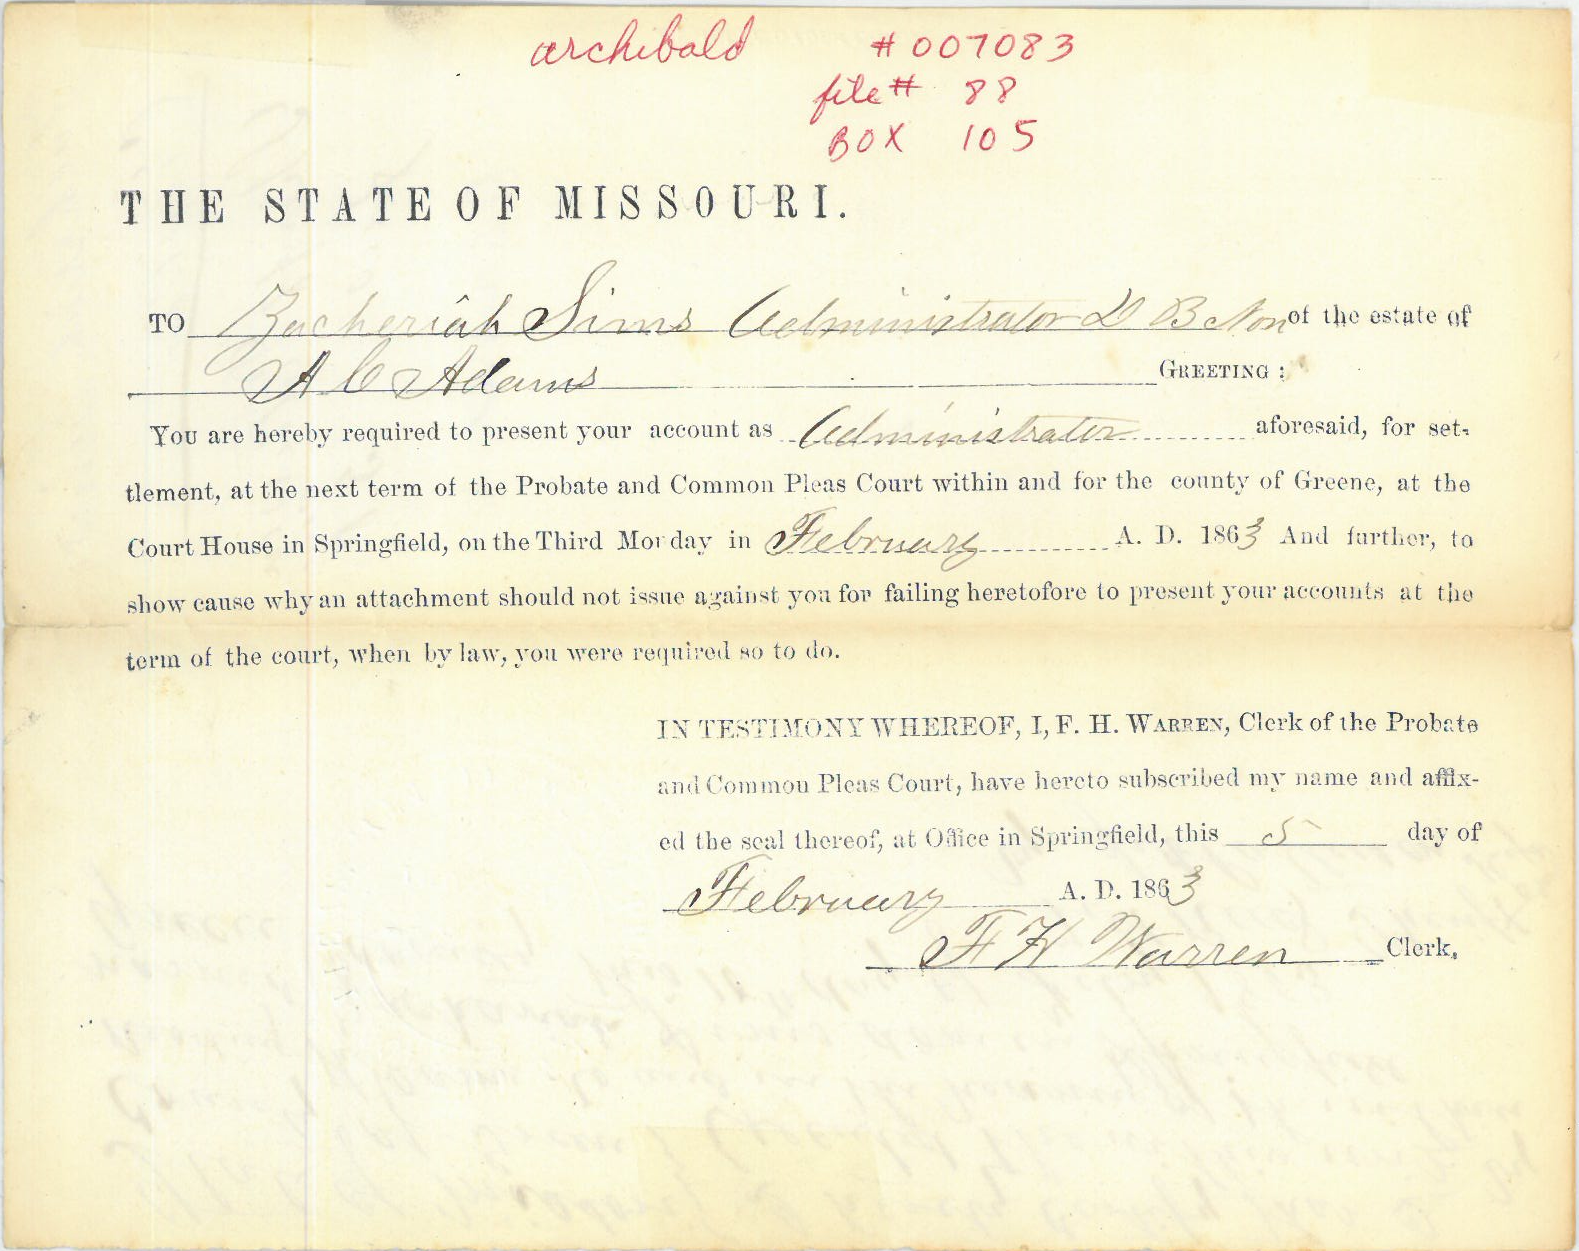 archibald #007083
file # 88
BOX 105
THE STATE OF MISSOURI.
TO Zacheriah Sims Administrator D B Non of the estate of
A C Adams GREETING:
You are hereby required to present your account as Administrator aforesaid, for set-
tlement, at the next term of the Probate and Common Pleas Court within and for the county of Greene, at the
Court House in Springfield, on the Third Monday in February A. D. 1863 And further, to
show cause why an attachment should not issue against you for failing heretofore to present your accounts at the
term of the court, when by law, you were required so to do.
IN TESTIMONY WHEREOF, I, F. H. WARREN, Clerk of the Probate
and Common Pleas Court, have hereto subscribed my name and affix-
ed the seal thereof, at Office in Springfield, this 5 day of
February A. D. 1863
F H Warren Clerk.